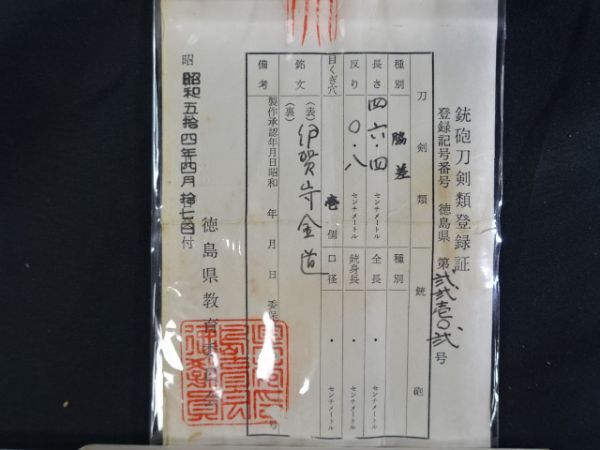 銃砲刀剣類登録証
登録記号番号 徳島県 第弐弐壱〇弐号
刀剣類 銃砲
種別 脇差 種別
長さ 四六・四 センチメートル 全長 ・ センチメートル
反り 〇・八 センチメートル 銃身長 ・ センチメートル
目くぎ穴 壱個 口径 ・ センチメートル
銘文 (表) 伊賀守金道
(裏)
備考 製作承認年月日昭和 年 月 日 委保 号
昭和五拾四年四月拾七日交付
徳島県教育委員会